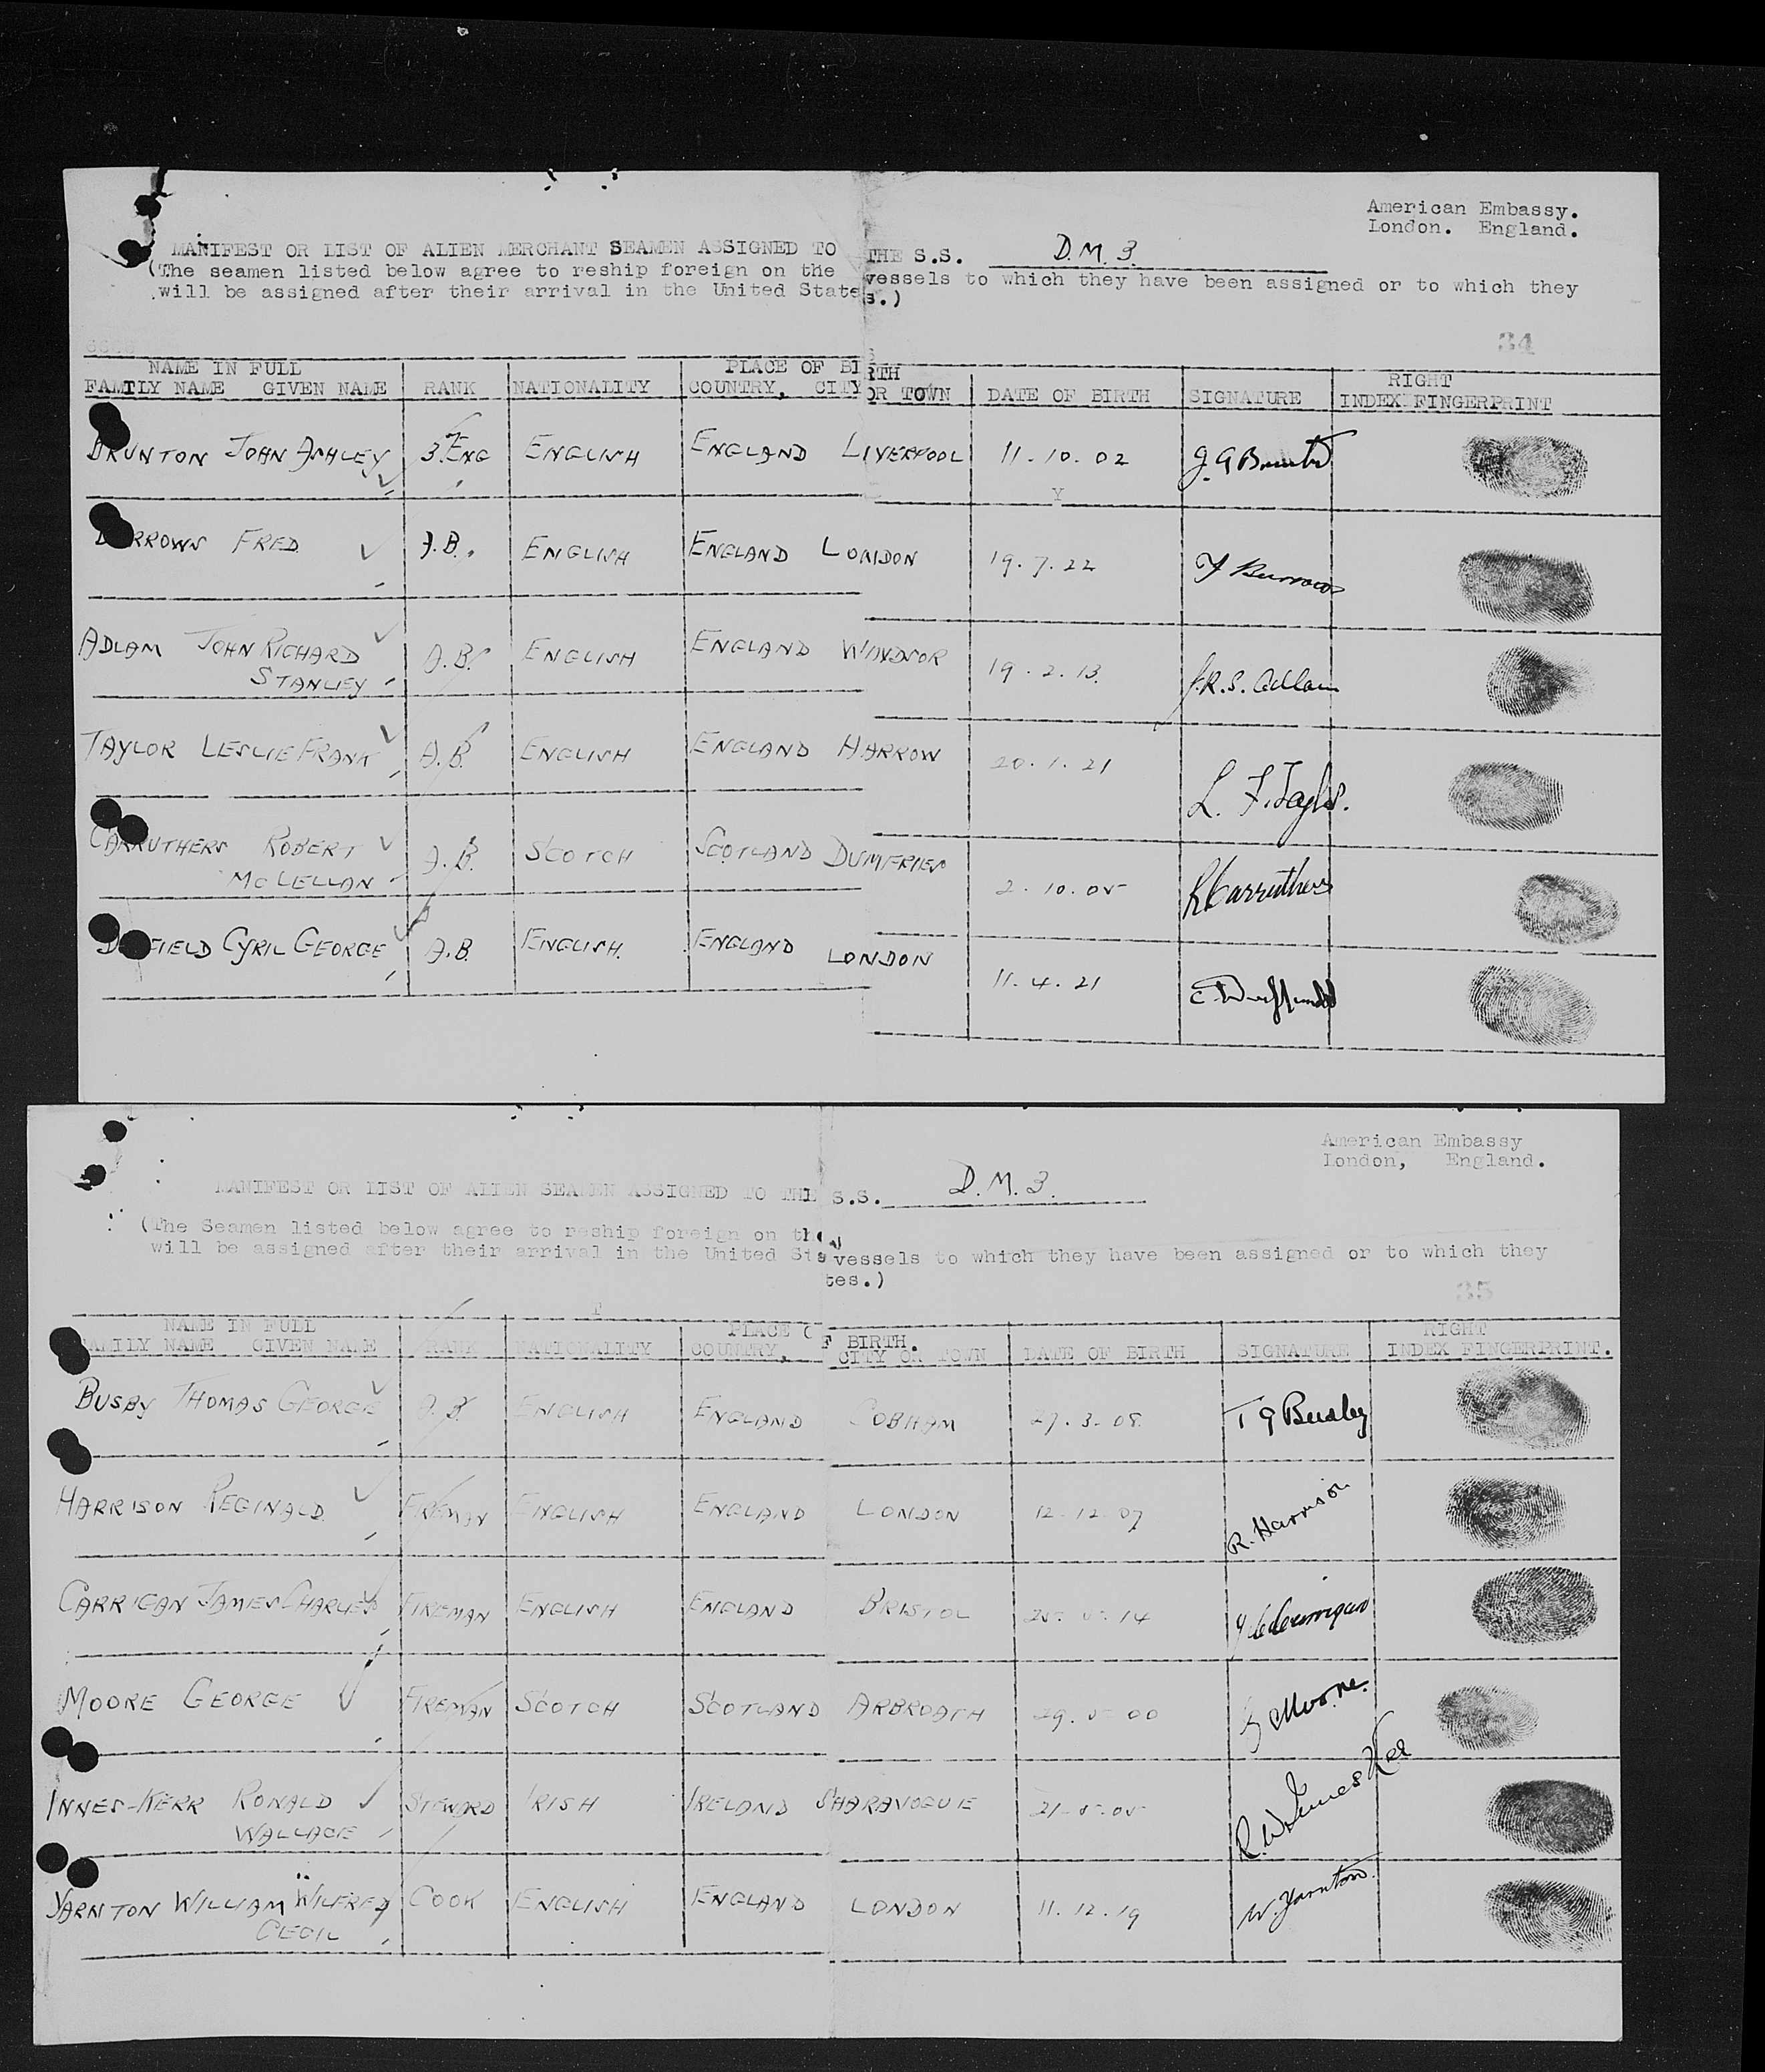 American Embassy.
London. England.
MANIFEST OR LIST OF ALIEN MERCHANT SEAMEN ASSIGNED TO THE S.S. D.M. 3.
(The seamen listed below agree to reship foreign on the vessels to which they have been assigned or to which they
will be assigned after their arrival in the United States.)
34
NAME IN FULL PLACE OF BIRTH RIGHT
FAMILY NAME GIVEN NAME RANK NATIONALITY COUNTRY, CITY OR TOWN DATE OF BIRTH SIGNATURE INDEX FINGERPRINT
BRUNTON JOHN ASHLEY 3.ENG ENGLISH ENGLAND LIVERPOOL 11.10.02
FRED A.B. ENGLISH ENGLAND LONDON 19.7.22 F Burrows
ADLAM JOHN RICHARD A.B. ENGLISH ENGLAND WINDSOR 19.2.13. J.R.S. Adlam
STANLEY
TAYLOR LESLIE FRANK A.B. ENGLISH ENGLAND HARROW 20.1.21 L. F. Taylor.
CARRUTHERS ROBERT A.B. SCOTCH SCOTLAND DUMFRIES 2.10.05 R Carruthers
MCLELLAN
FIELD CYRIL GEORGE A.B. ENGLISH. ENGLAND LONDON 11.4.21
American Embassy
London, England.
MANIFEST OR LIST OF ALIEN SEAMEN ASSIGNED TO THE S.S. D.M. 3.
(The Seamen listed below agree to reship foreign on the vessels to which they have been assigned or to which they
will be assigned after their arrival in the United States.)
35
NAME IN FULL PLACE OF BIRTH. RIGHT
FAMILY NAME GIVEN NAME RANK NATIONALITY COUNTRY, CITY OR TOWN DATE OF BIRTH SIGNATURE INDEX FINGERPRINT.
BUSBY THOMAS GEORGE A.B. ENGLISH ENGLAND COBHAM 27.3.08. T G Busby
HARRISON REGINALD. FIREMAN ENGLISH ENGLAND LONDON 12.12.07 R. Harrison
CARRIGAN JAMES CHARLES FIREMAN ENGLISH ENGLAND BRISTOL 25.5.14 J C Carrigan
MOORE GEORGE FIREMAN SCOTCH SCOTLAND ARBROATH 29.5.00 G Moore.
INNES-KERR RONALD STEWARD IRISH IRELAND SHARAVOGUE 21.5.05 R. W. Innes Kerr
WALLACE
YARNTON WILLIAM WILFRED COOK ENGLISH ENGLAND LONDON 11.12.19 W. Yarnton.
CECIL